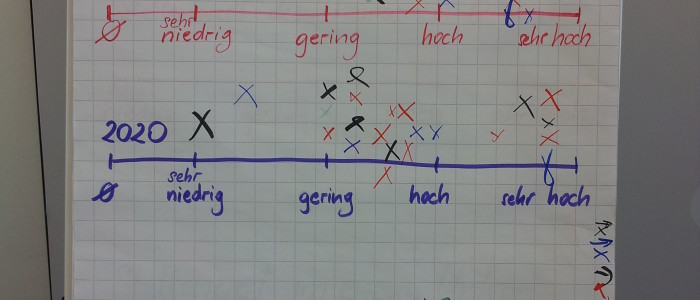 Ø sehr niedrig gering hoch sehr hoch
2020
Ø sehr niedrig gering hoch sehr hoch